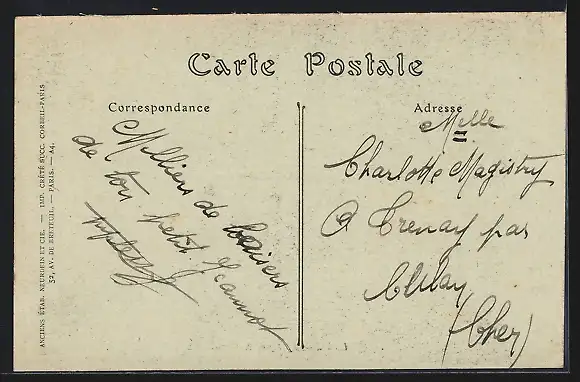 Carte Postale
Correspondance
Milliers de baisers
de ton petit Jeannot
Adresse
Melle
Charlotte Magistry
A Trenay par
(Cher)
ANCIENS ÉTAB. NEURDEIN ET CIE. — IMP. CRÉTÉ SUCC. CORBEIL-PARIS
52, AV. DE BRETEUIL. — PARIS. — A4.